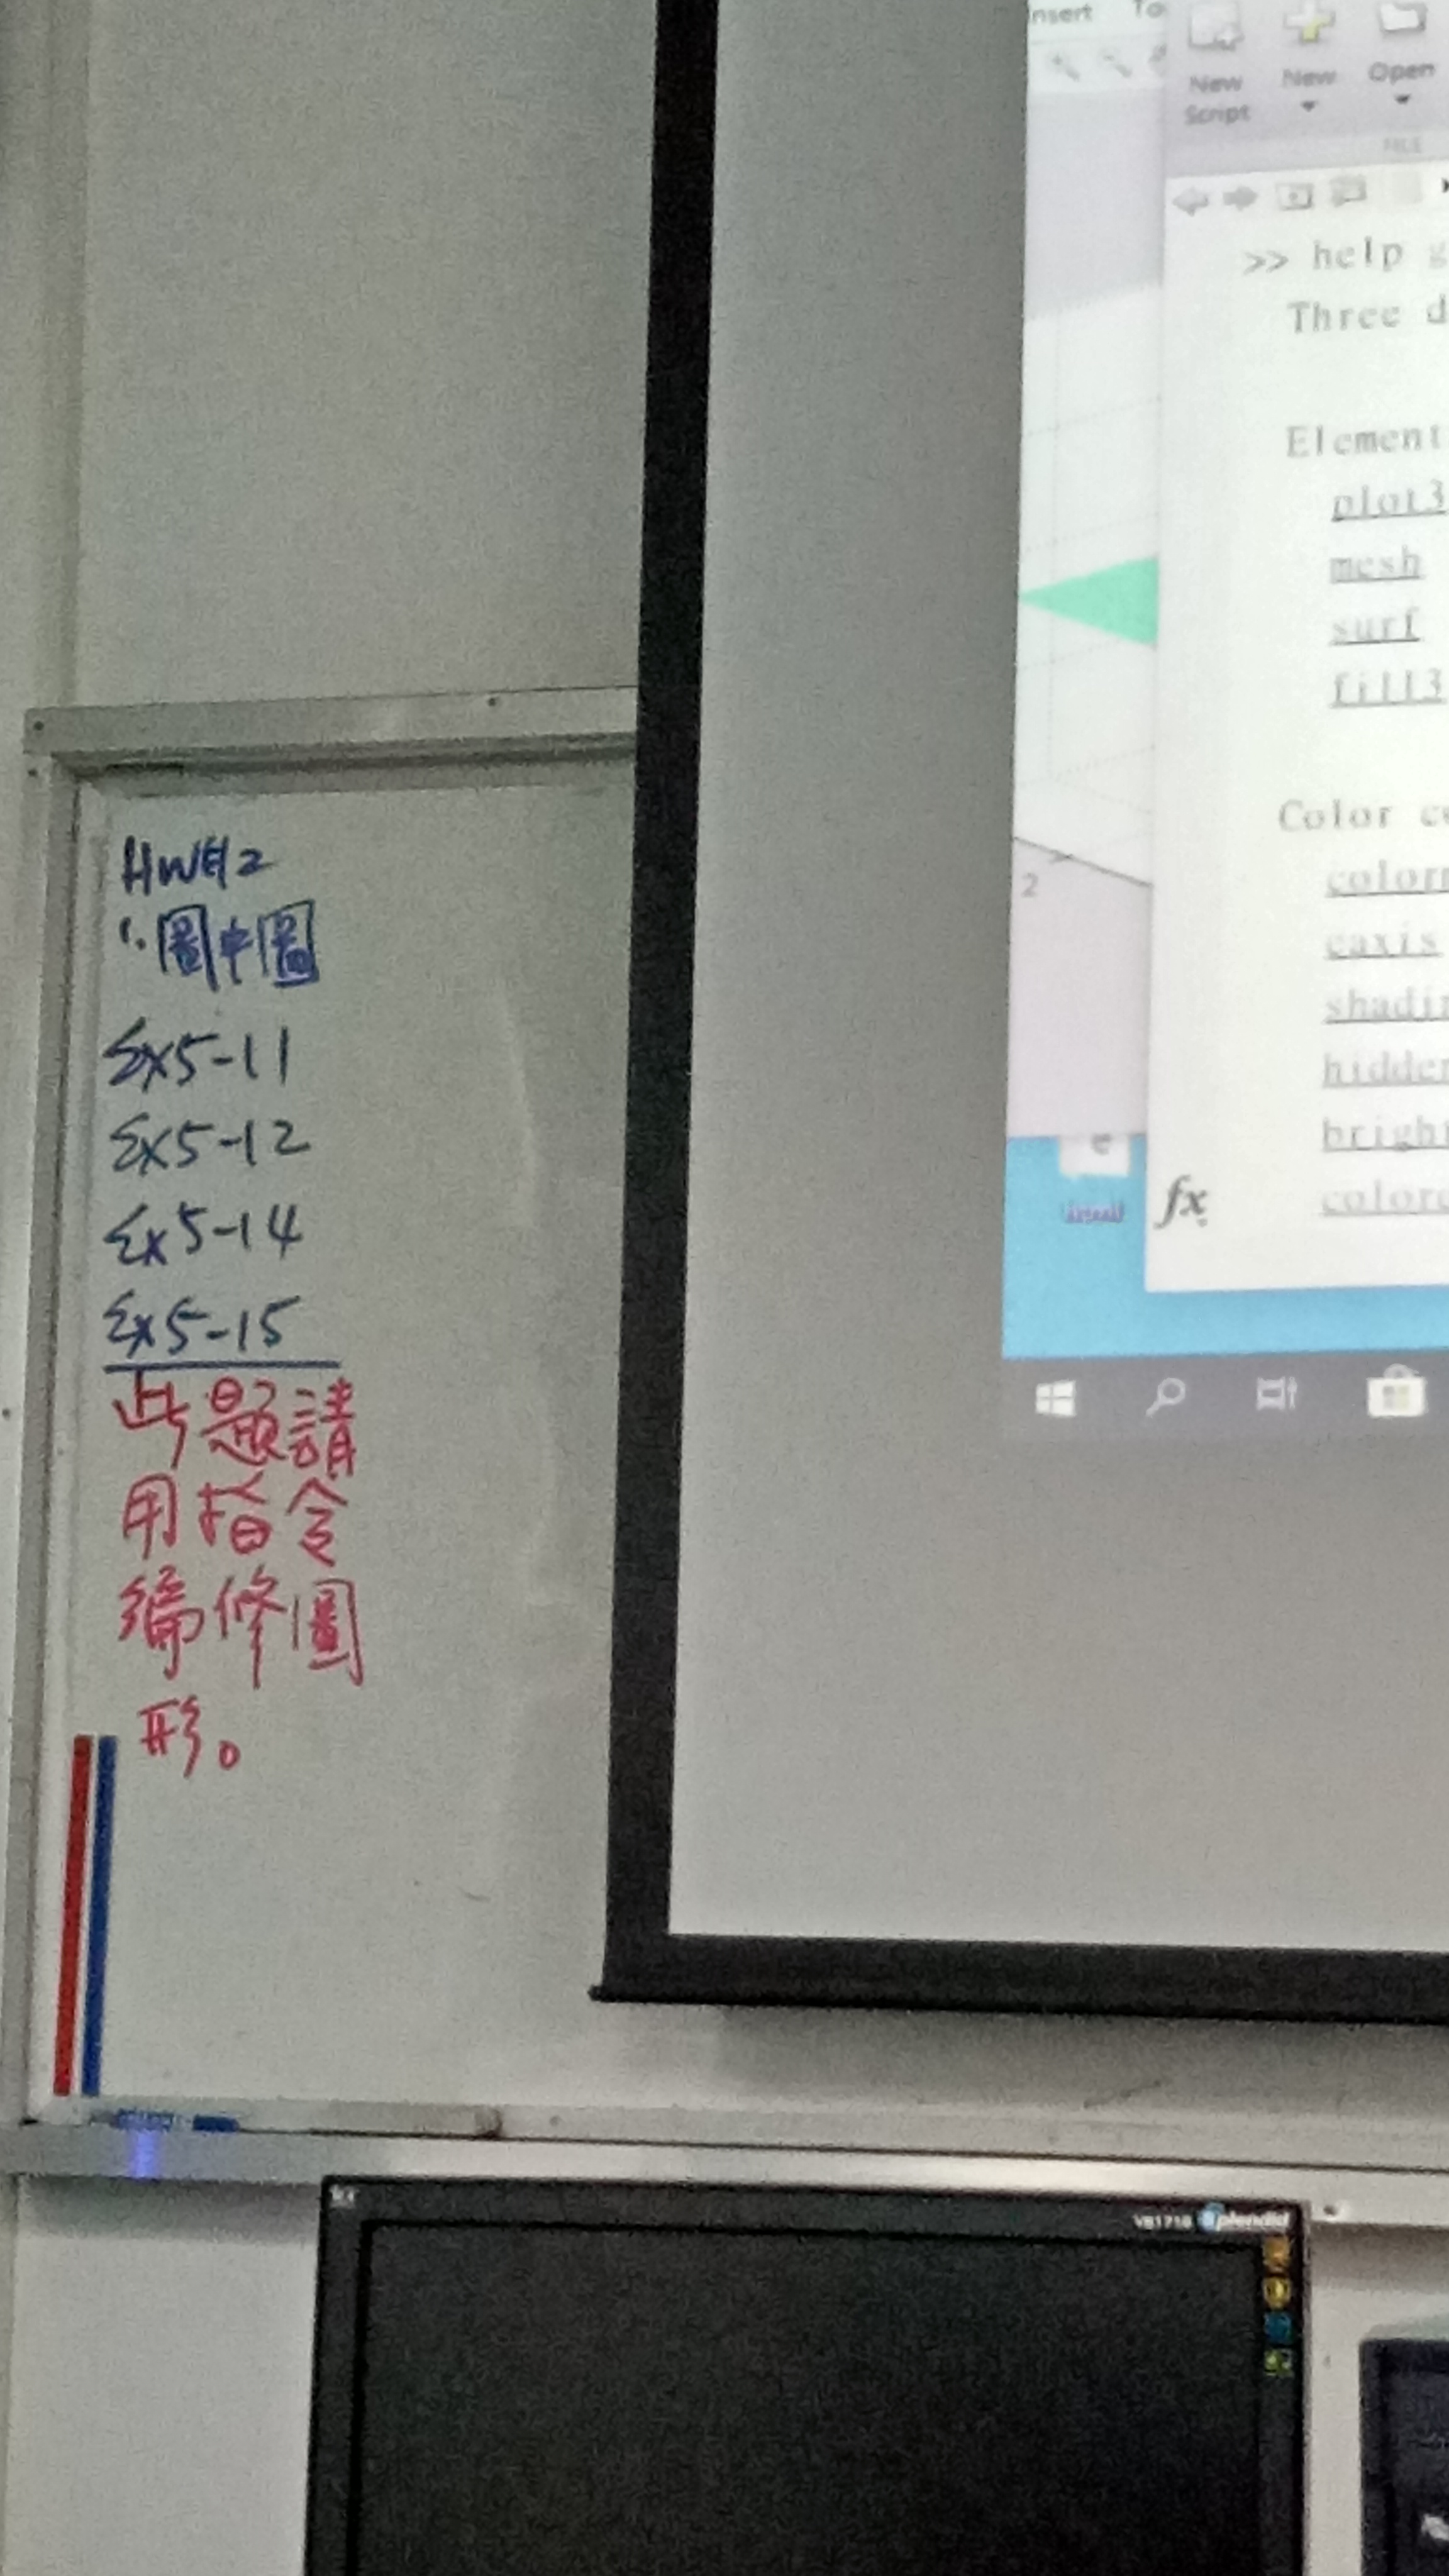 HW#2
1. 圖中圖
Ex5-11
Ex5-12
Ex5-14
Ex5-15
此題請
用指令
編修圖
形。
nsert To
New Script
New
Open
FILE
>> help g
Three d
Element
plot3
mesh
surf
fill3
Color co
colorm
caxis
shadin
hidden
bright
colord
2
fx
Splendid